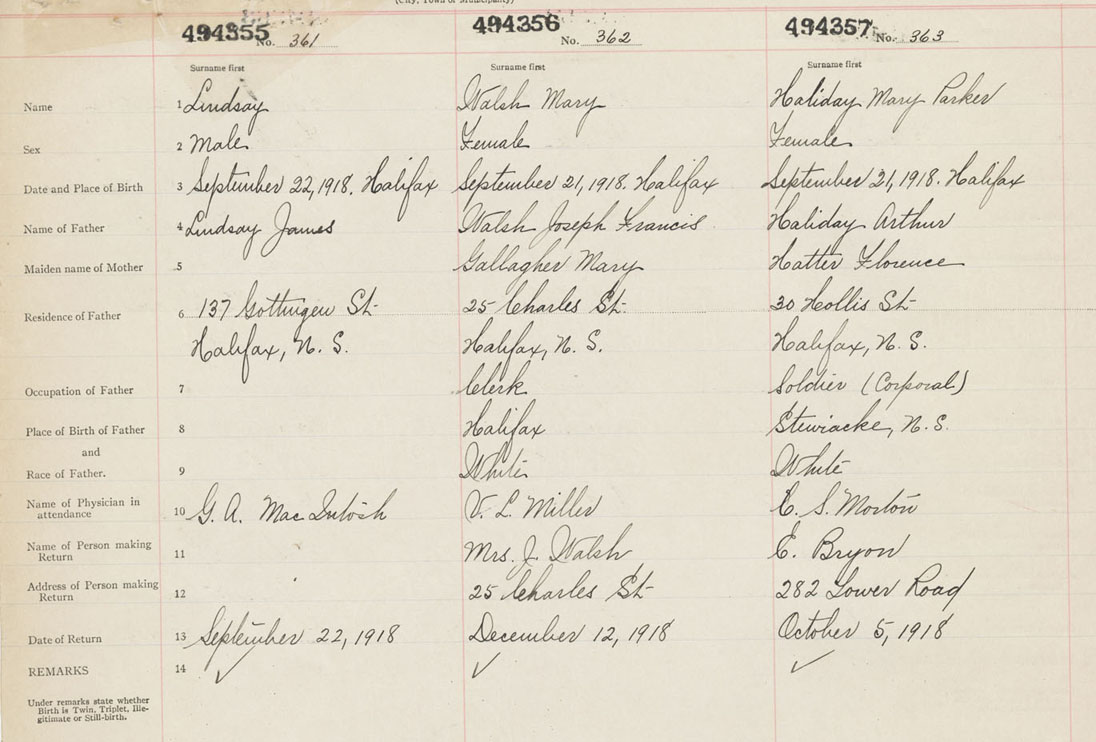 (City, Town or Municipality)
494355 No. 361 494356 No. 362 494357 No. 363
Surname first Surname first Surname first
Name 1 Lindsay Walsh Mary Haliday Mary Parker
Sex 2 Male Female Female
Date and Place of Birth 3 September 22, 1918. Halifax September 21, 1918. Halifax September 21, 1918. Halifax
Name of Father 4 Lindsay James Walsh Joseph Francis Haliday Arthur
Maiden name of Mother 5 Gallagher Mary Hatter Florence
Residence of Father 6 137 Gottingen St. 25 Charles St. 30 Hollis St.
Halifax, N. S. Halifax, N. S. Halifax, N. S.
Occupation of Father 7 Clerk Soldier (Corporal)
Place of Birth of Father 8 Halifax Stewiacke, N. S.
and
Race of Father. 9 White White
Name of Physician in
attendance 10 G. A. MacIntosh V. L. Miller C. S. Morton
Name of Person making
Return 11 Mrs. J. Walsh E. Bryon
Address of Person making
Return 12 25 Charles St 282 Lower Road
Date of Return 13 September 22, 1918 December 12, 1918 October 5, 1918
REMARKS 14 ✓ ✓ ✓
Under remarks state whether
Birth is Twin, Triplet, Ille-
gitimate or Still-birth.